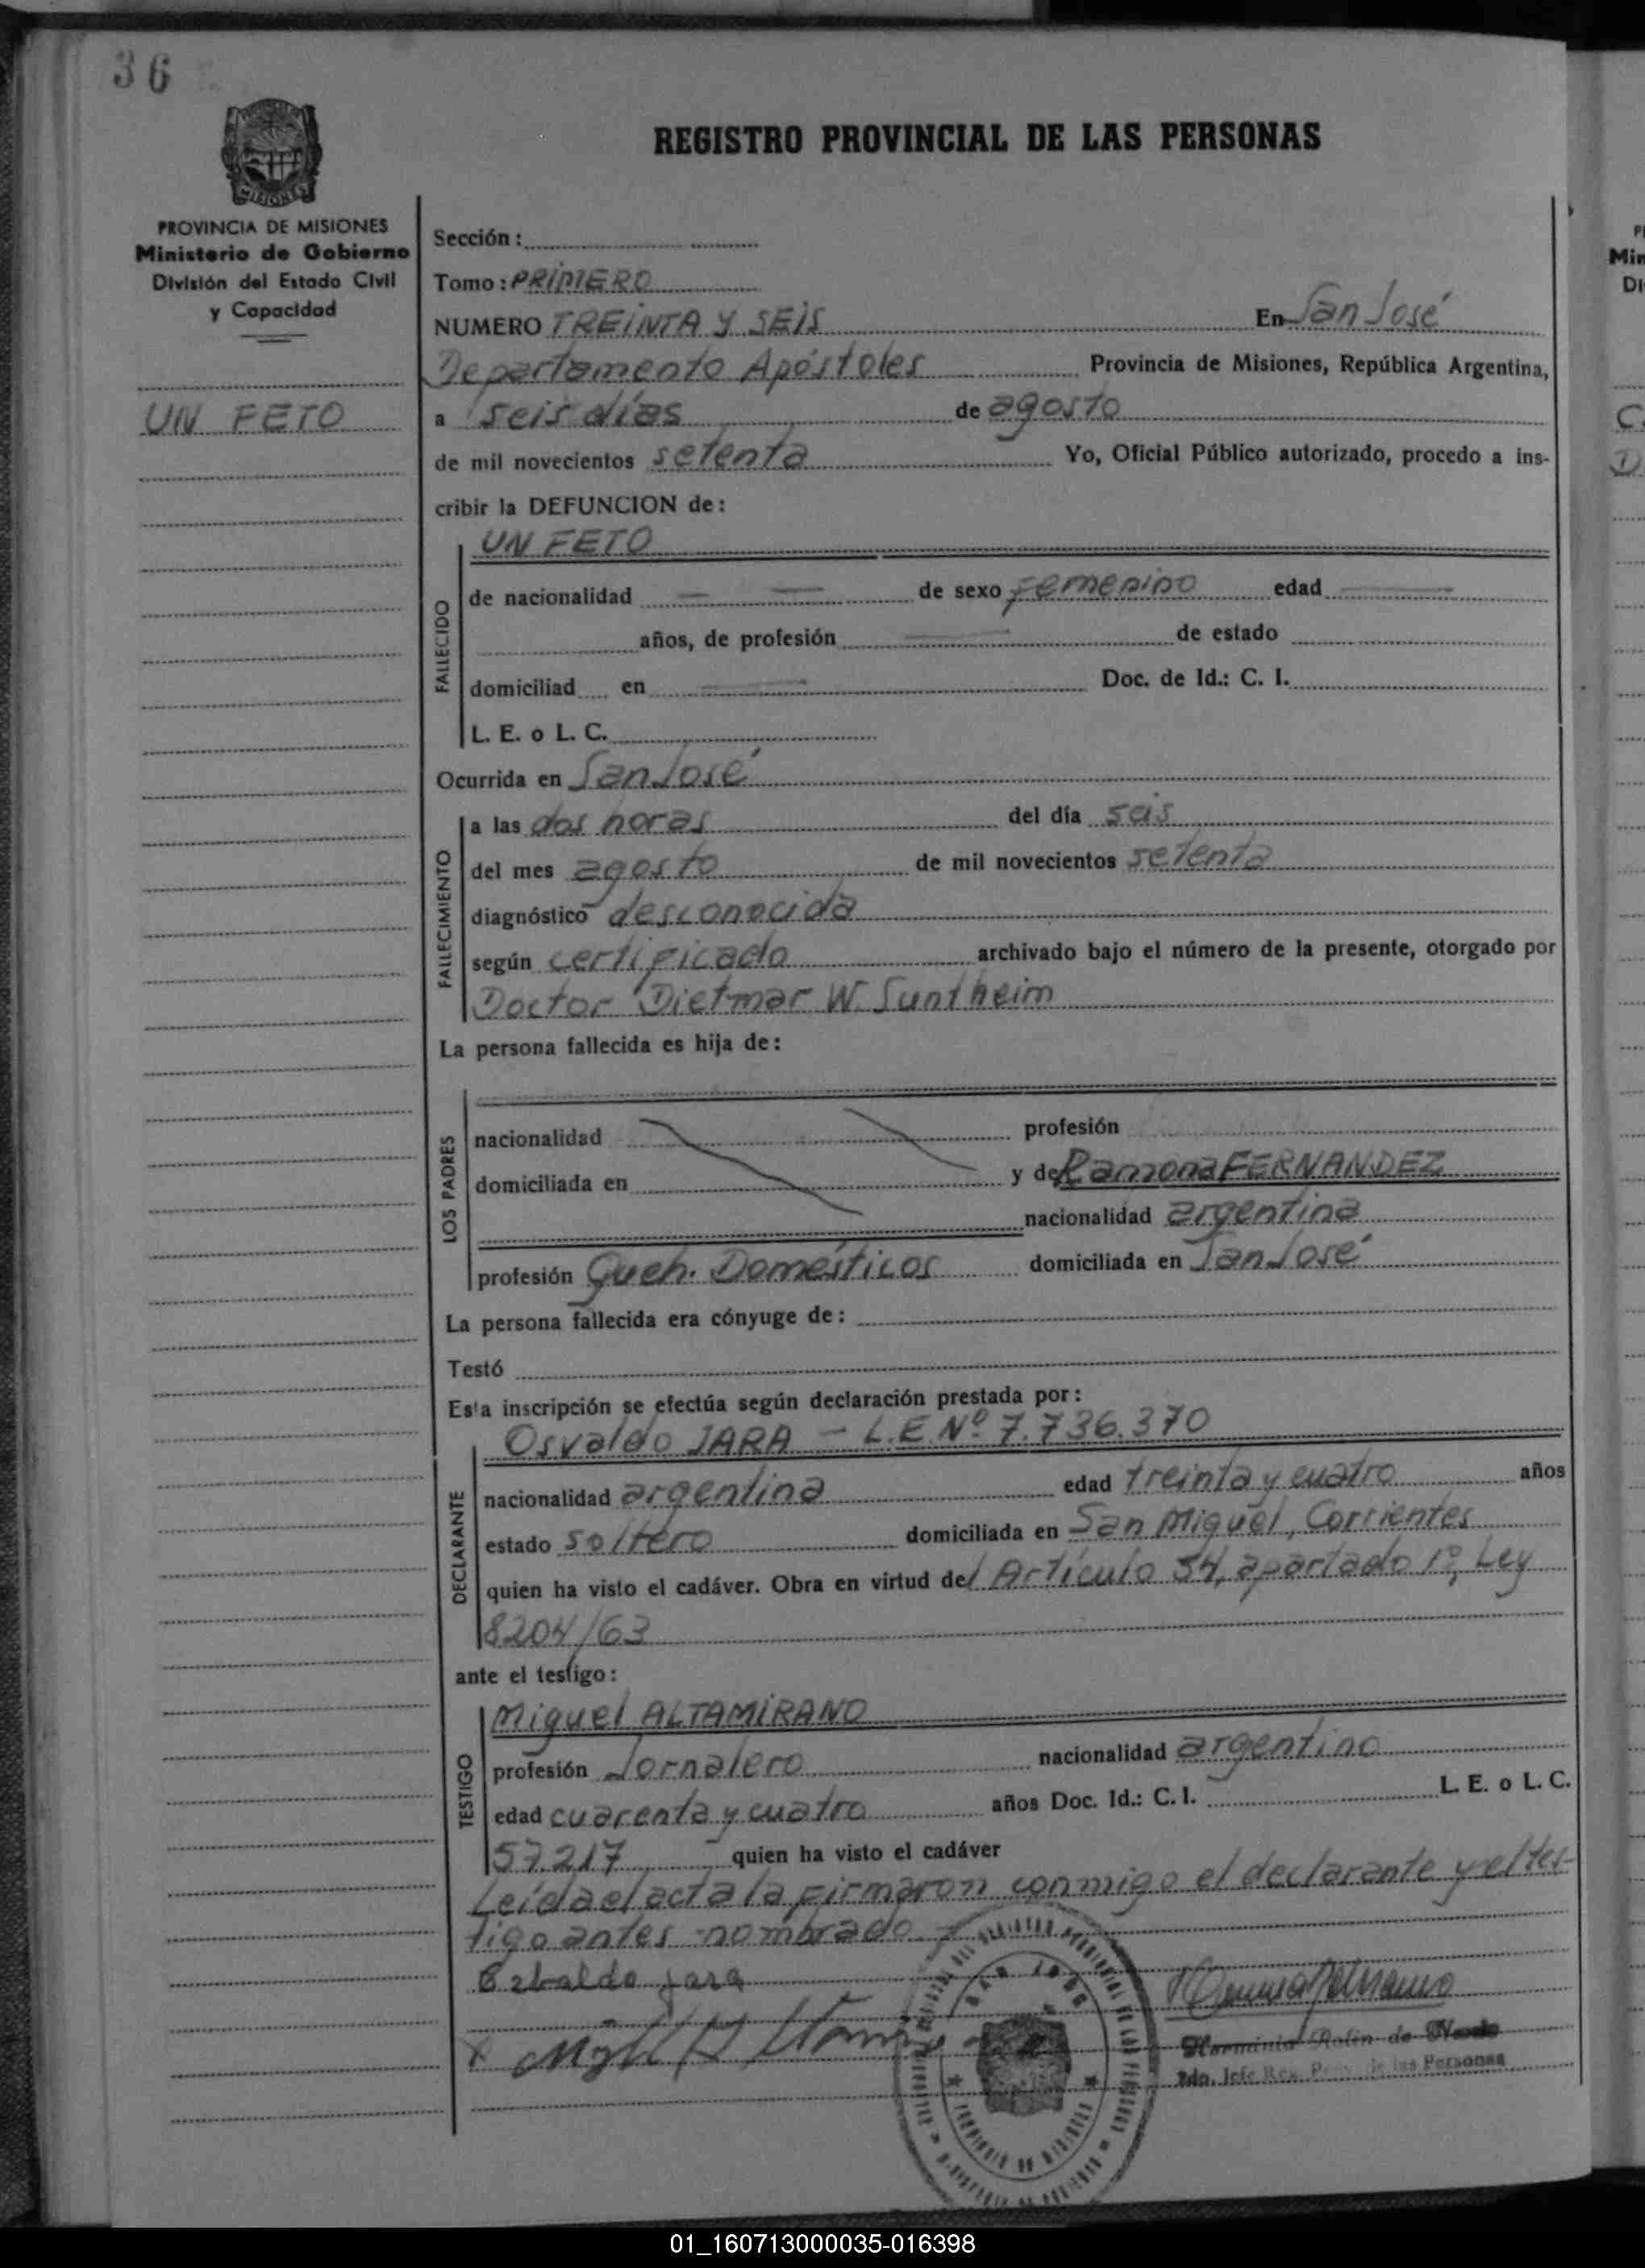 36
REGISTRO PROVINCIAL DE LAS PERSONAS
MISIONES
PROVINCIA DE MISIONES
Ministerio de Gobierno
División del Estado Civil
y Capacidad
UN FETO
Sección:
Tomo: PRIMERO
NUMERO TREINTA Y SEIS En San José
Departamento Apóstoles Provincia de Misiones, República Argentina,
a seis días de agosto
de mil novecientos setenta Yo, Oficial Público autorizado, procedo a ins-
cribir la DEFUNCION de:
FALLECIDO
UN FETO
de nacionalidad — — de sexo femenino edad —
años, de profesión — de estado
domiciliad en — Doc. de Id.: C. I.
L. E. o L. C.
Ocurrida en San José
FALLECIMIENTO
a las dos horas del día seis
del mes agosto de mil novecientos setenta
diagnóstico desconocida
según certificado archivado bajo el número de la presente, otorgado por
Doctor Dietmar W. Suntheim
La persona fallecida es hija de:
LOS PADRES
nacionalidad profesión
domiciliada en y de Ramona FERNANDEZ
nacionalidad argentina
profesión Queh. Domésticos domiciliada en San José
La persona fallecida era cónyuge de:
Testó
Esta inscripción se efectúa según declaración prestada por:
DECLARANTE
Osvaldo JARA - L.E.Nº 7.736.370
nacionalidad argentina edad treinta y cuatro años
estado soltero domiciliada en San Miguel, Corrientes
quien ha visto el cadáver. Obra en virtud del Artículo 54, apartado 1º, Ley
8204/63
ante el testigo:
TESTIGO
Miguel ALTAMIRANO
profesión Jornalero nacionalidad argentino
edad cuarenta y cuatro años Doc. Id.: C. I. L. E. o L. C.
57.217 quien ha visto el cadáver
Leída el acta la firmaron conmigo el declarante y el tes-
tigo antes nombrado.-
Ozbaldo Jara
Herminia Rolin de
Jefe Reg. Prov. de las Personas
SAN JOSE
PROVINCIA DE MISIONES
01_160713000035-016398